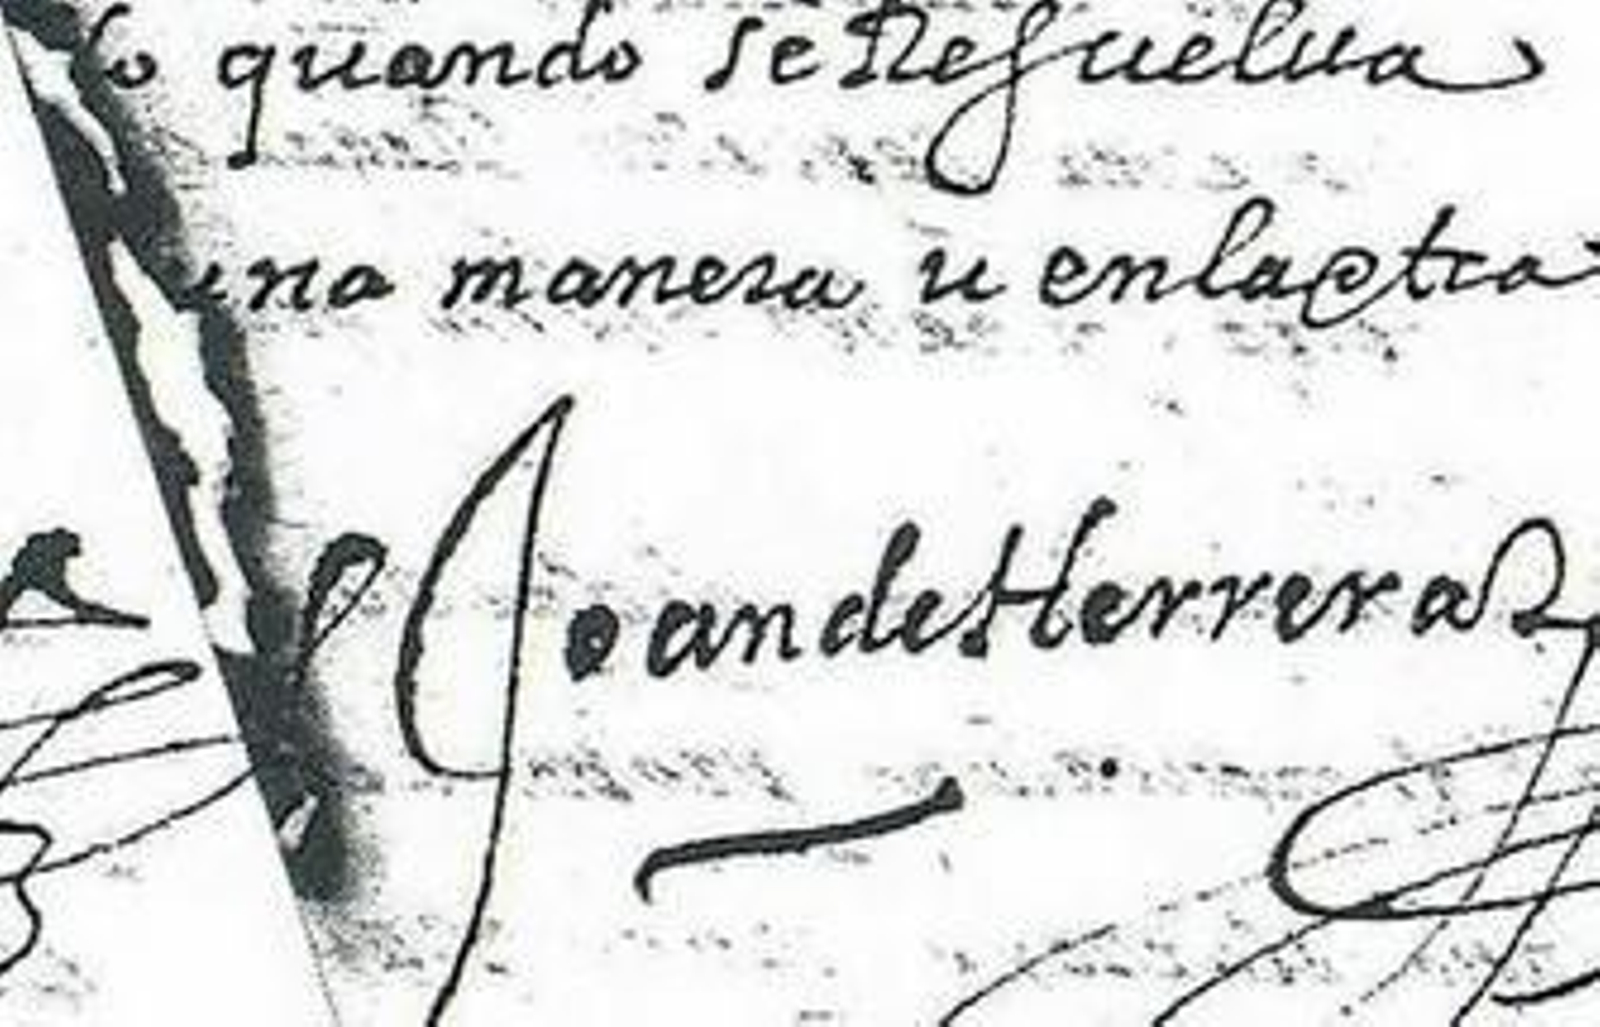 quando se Resuelua
una manera u en la otra
Joan de Herrera